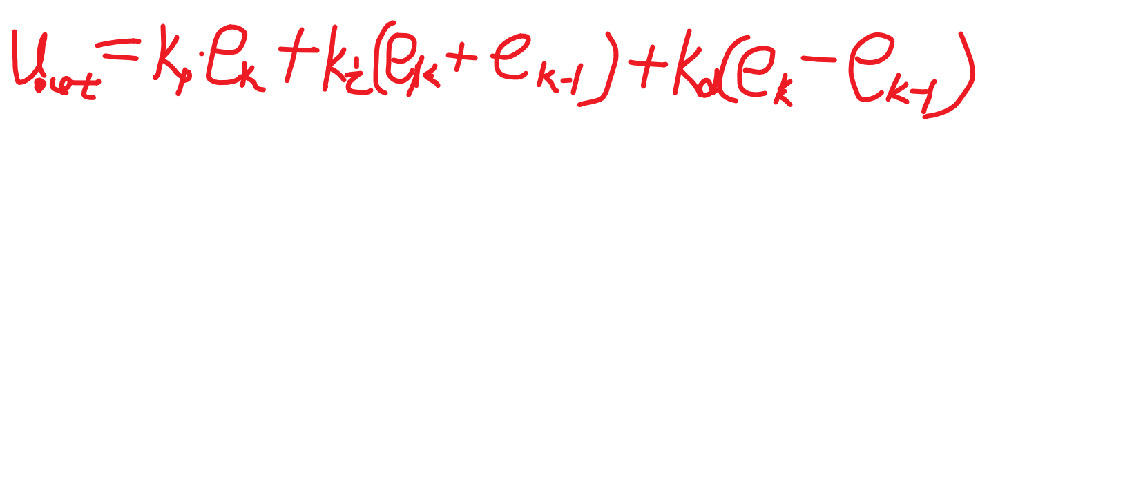 u_out = k_p · e_k + k_i(e_k + e_{k-1}) + k_d(e_k - e_{k-1})